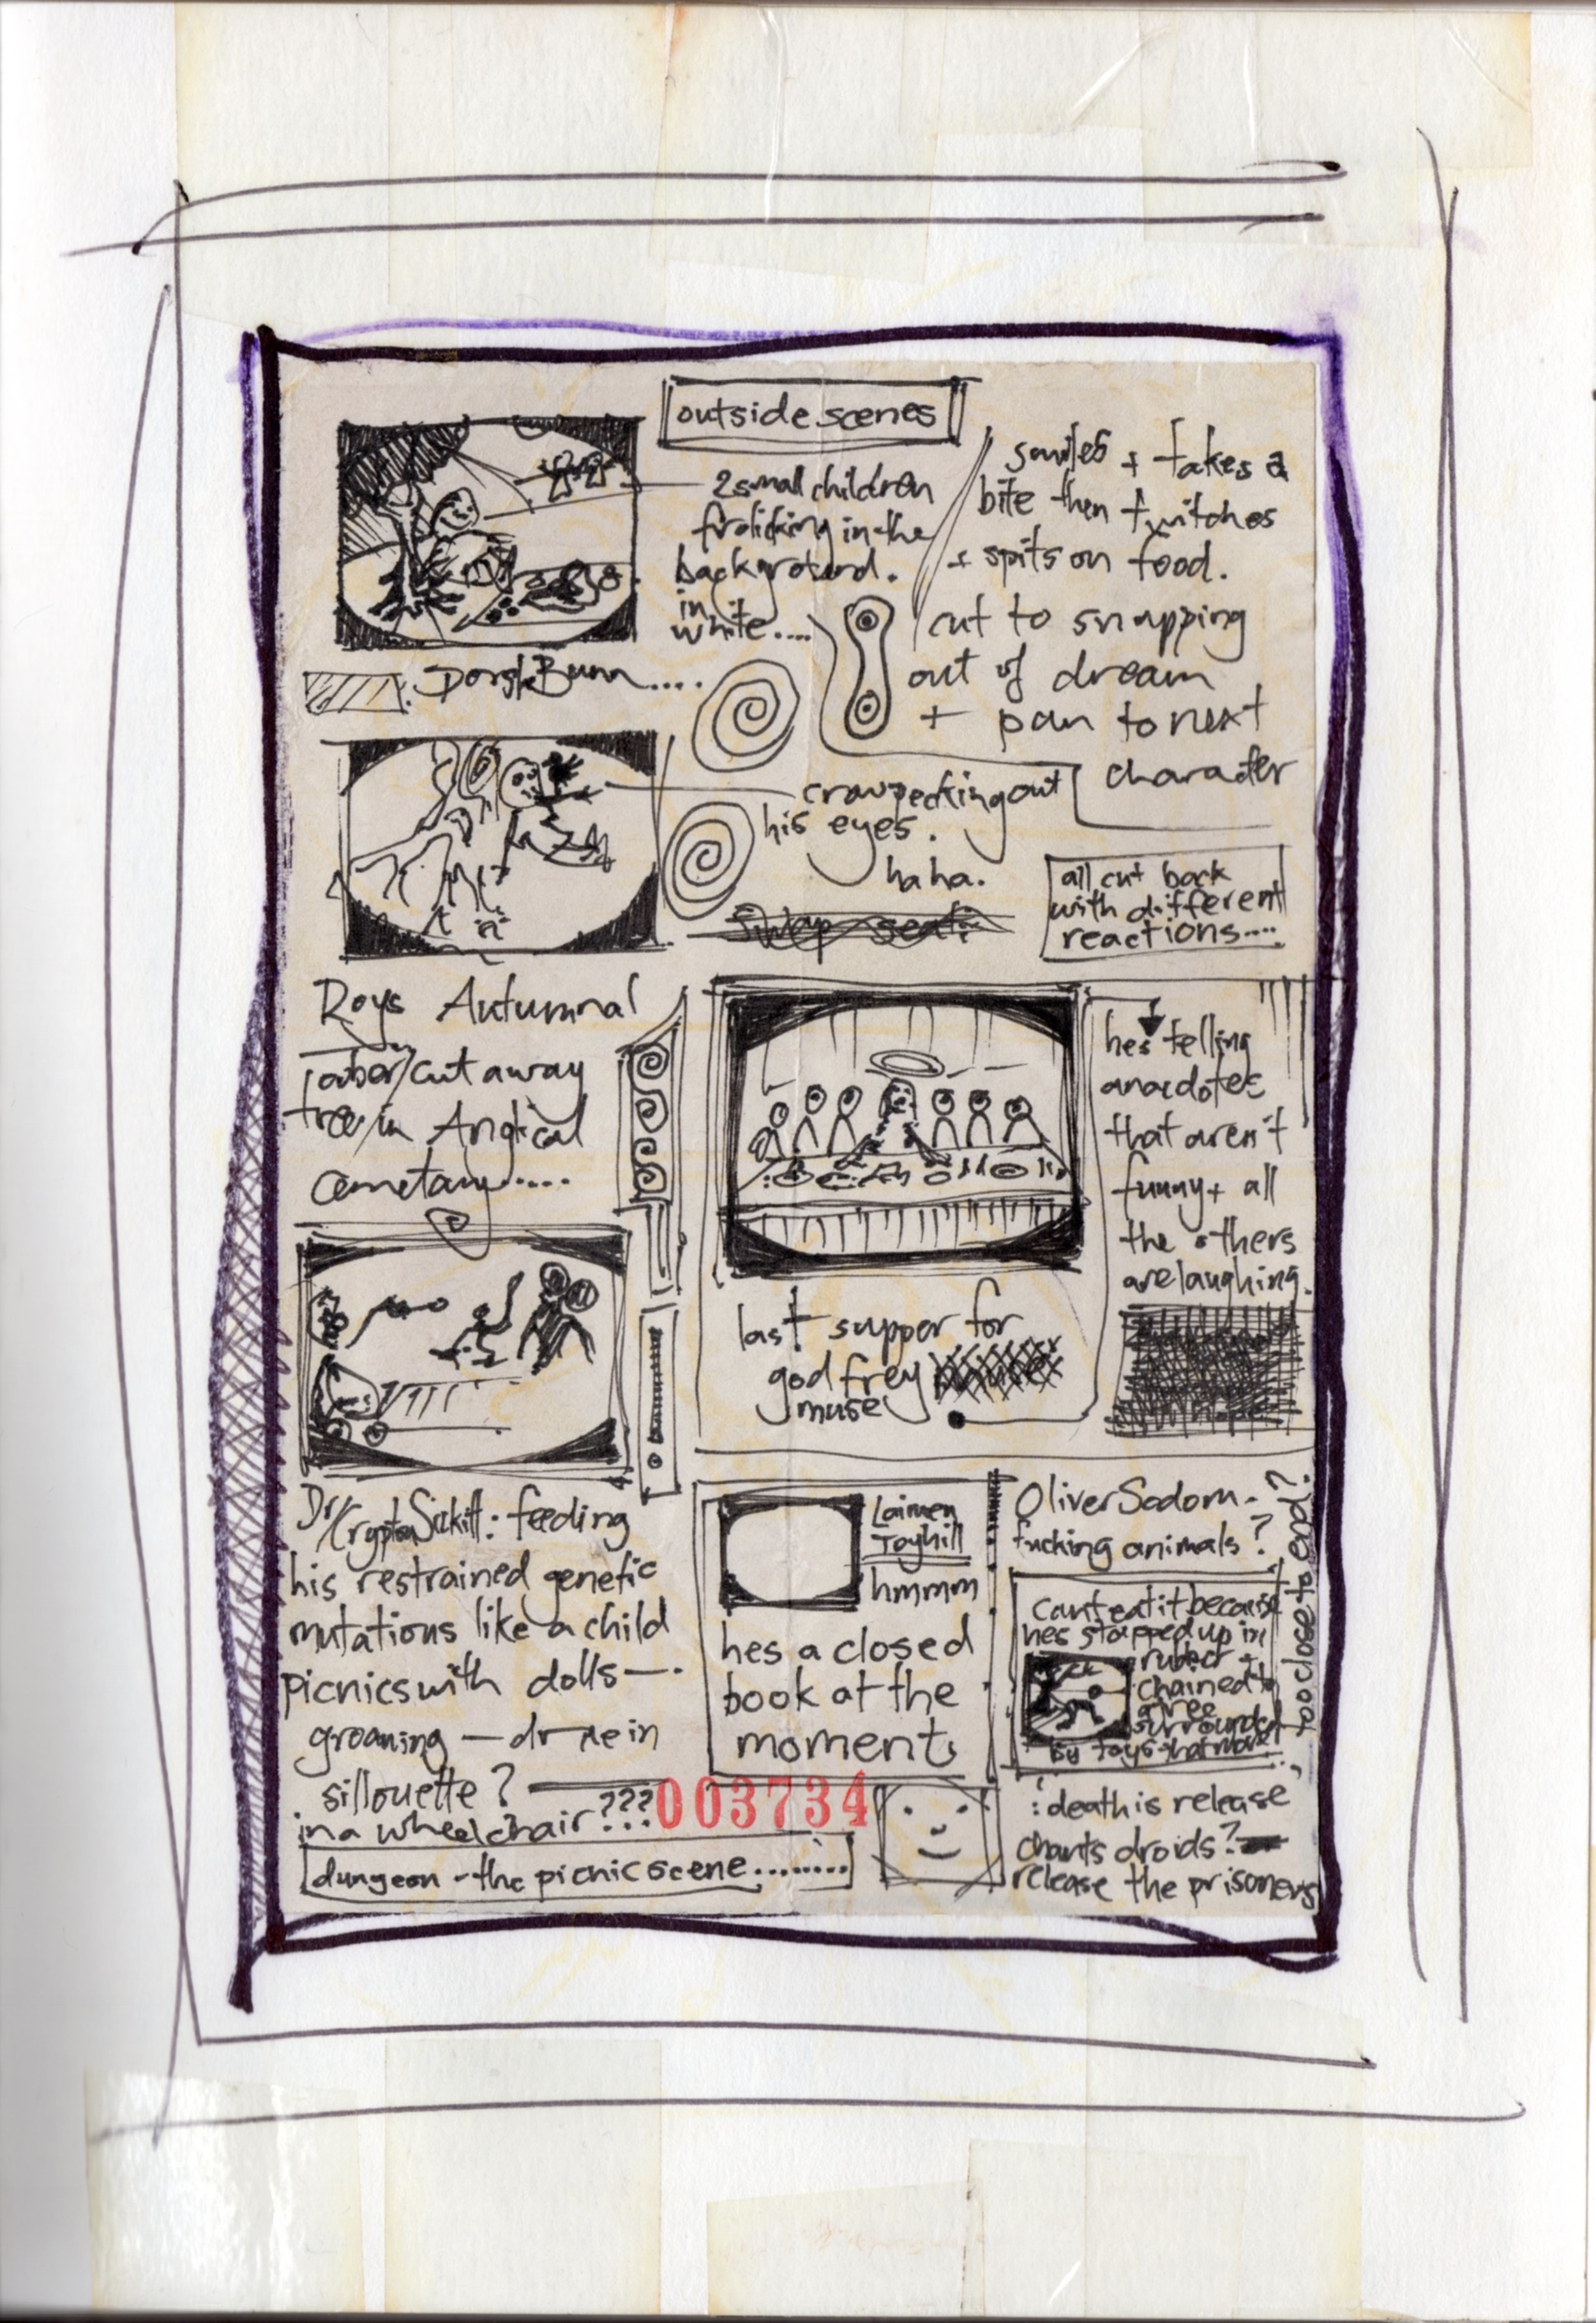 outside scenes
2 small children
frolicking in the
background.
in
white....
smiles + takes a
bite then twitches
+ spits on food.
cut to snapping
out of dream
+ pan to next
character
crow pecking out
his eyes.
ha ha.
all cut back
with different
reactions....
Roys Autumnal
/cut away
tree/in Anglical
cemetary.....
hes telling
anacdotes
that aren't
funny + all
the others
are laughing.
last supper for
godfrey
muse
Dr/Crypton : feeding
his restrained genetic
mutations like a child
picnics with dolls—.
groaning — dr in
sillouette?
in a wheelchair???
003734
dungeon - the picnic scene........
Laimen
Toyhill
hmmm
hes a closed
book at the
moment.
Oliver Sodom -
fucking animals?
too close to end?
cant eat it because
hes strapped up in
rubber +
chained to
a tree
surrounded
by toys that move
: death is release
chants droids?
release the prisoners